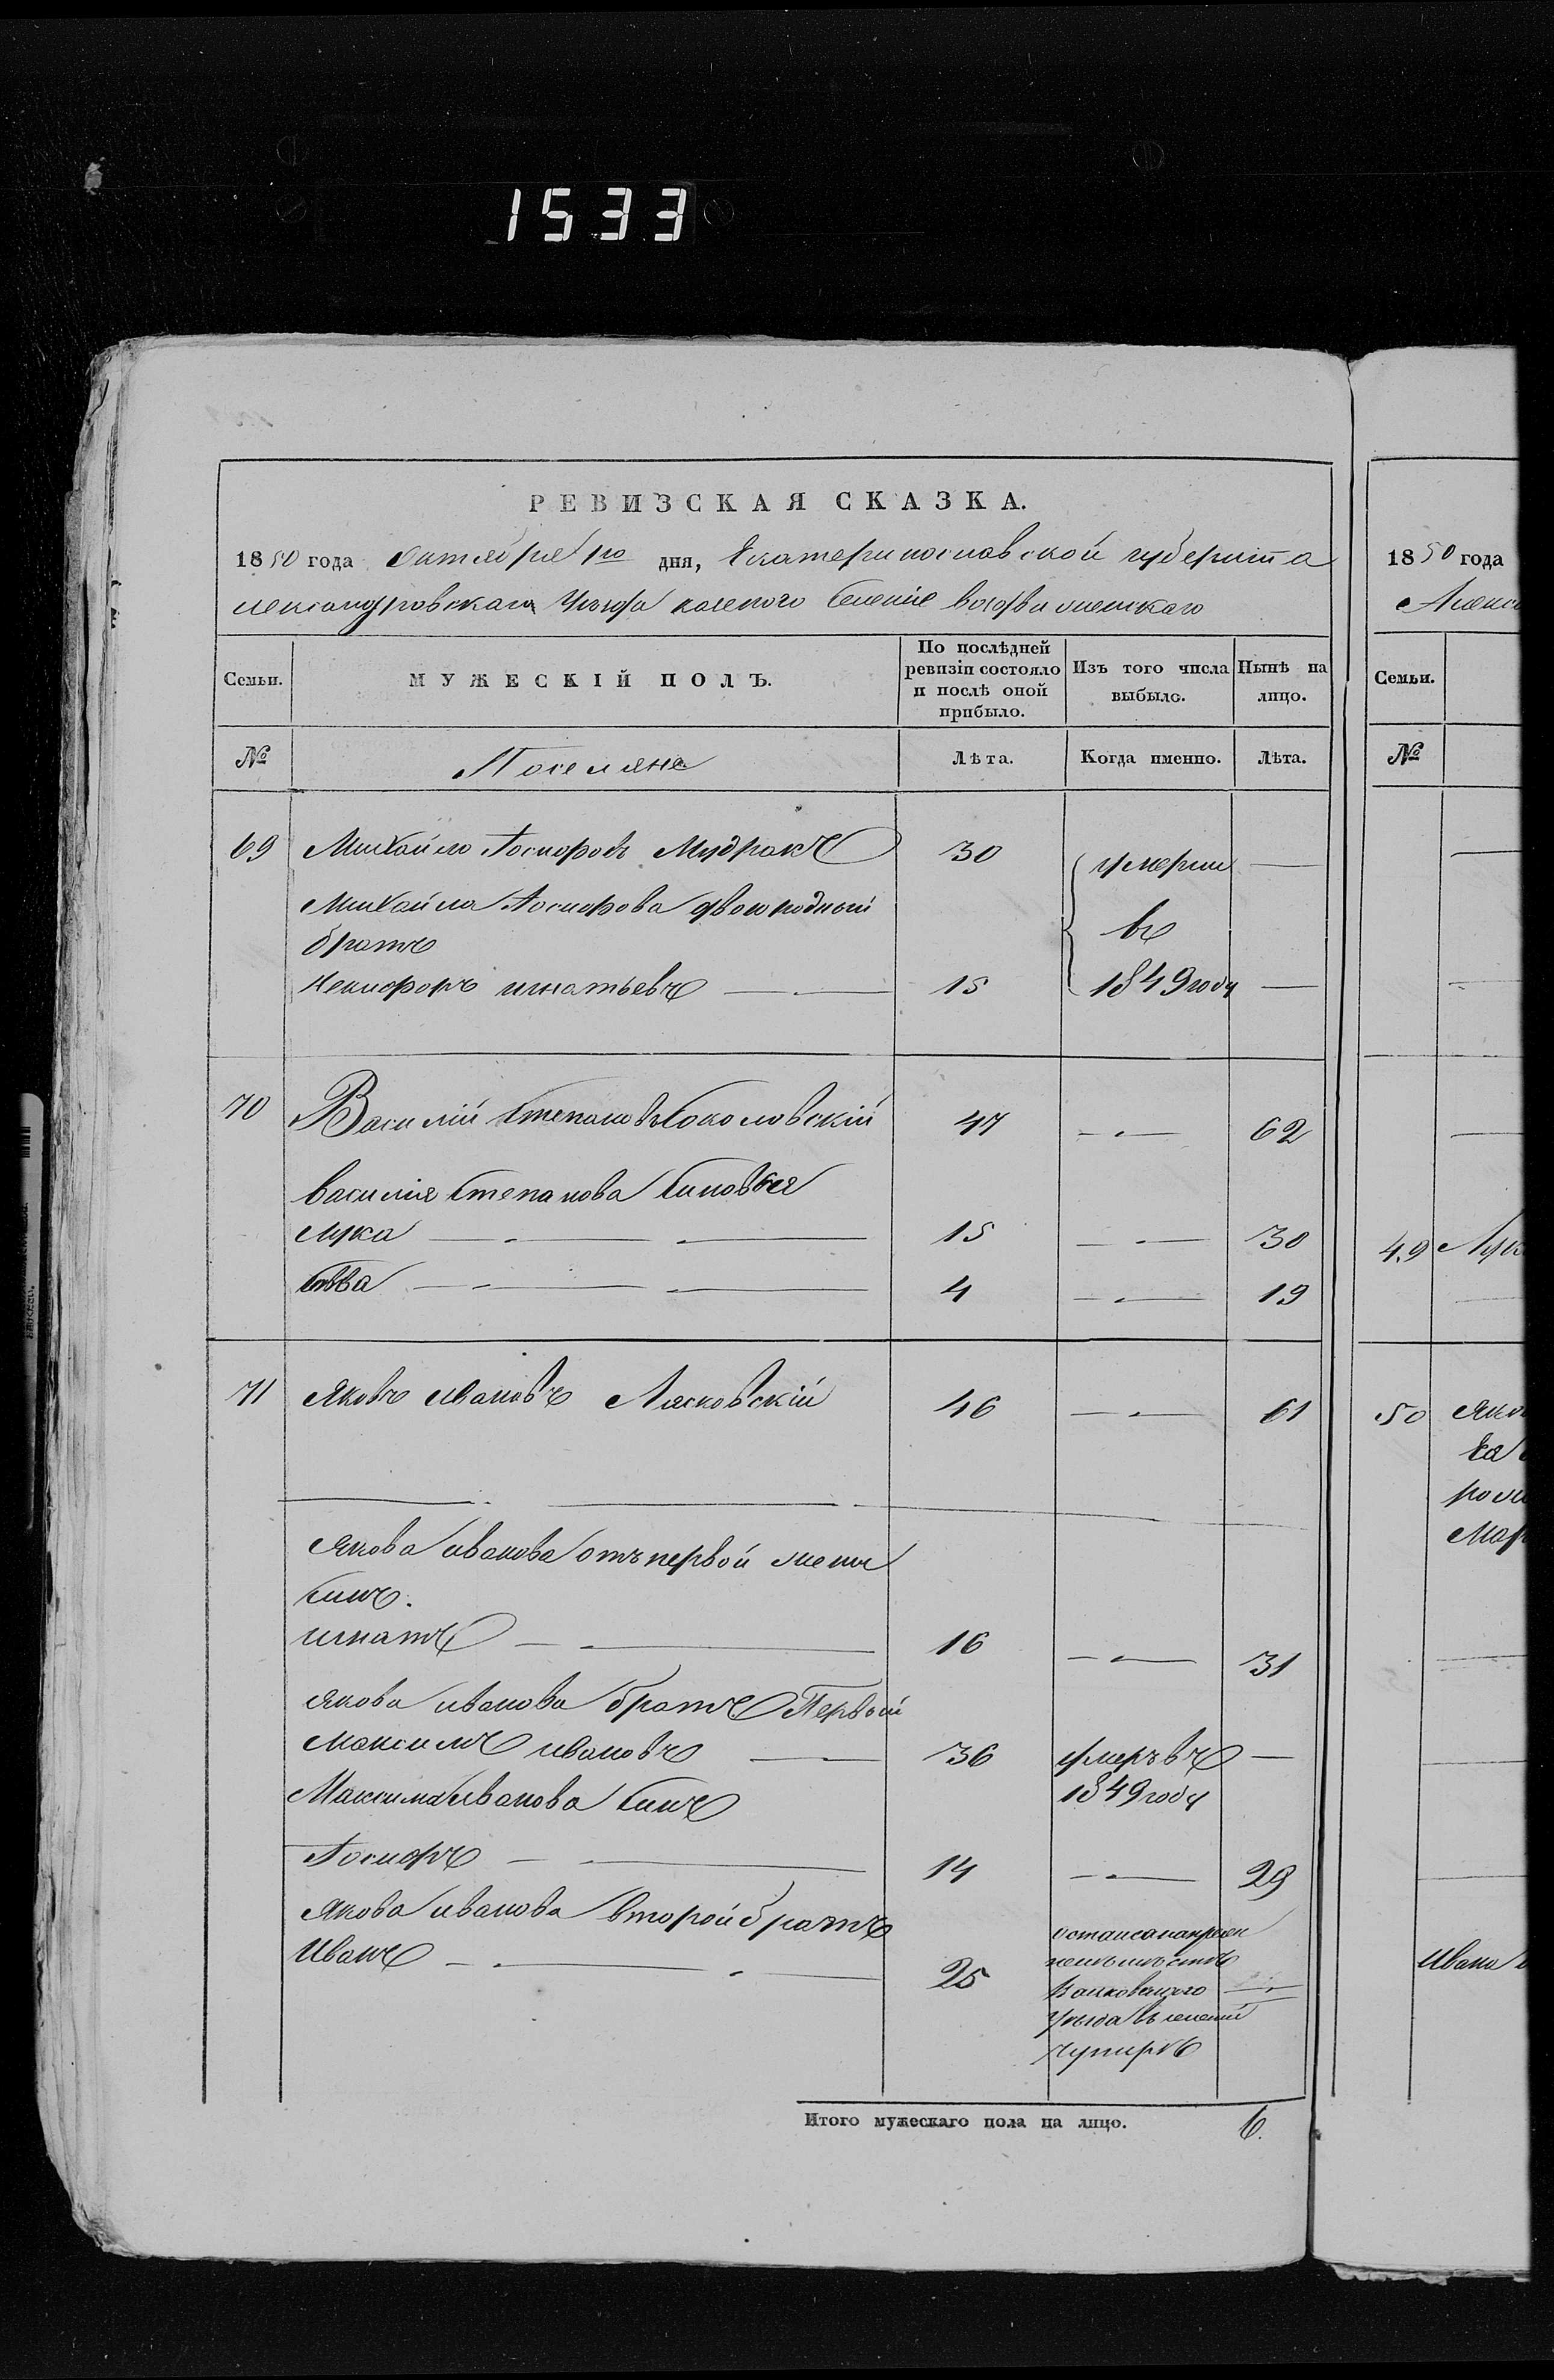 1533
РЕВИЗСКАЯ СКАЗКА.
1850 года Октября 1го дня, Екатеринославской губерніи а
лександровскаго Уѣзда казеного Селенія воздвиженскаго
Семьи. МУЖЕСКІЙ ПОЛЪ. По послѣдней ревизіи состояло и послѣ оной прибыло. Изъ того числа выбыло. Нынѣ на лицо.
№ Поселяне Лѣта. Когда именно. Лѣта.
69 Михайло Іосифовъ Мудракъ 30 умерли —
Михайла Іосифова двоюродный
братъ въ
Некифоръ игнатьевъ — 15 1849 году —
70 Василій Степановъ Соколовскій 47 — 62
василія Степанова Сыновья
лука — 15 — 30
Савва — 4 — 19
71 Яковъ ивановъ Лясковскій 46 — 61
Якова иванова отъ первой жены
Сынъ.
игнатъ — 16 — 31
Якова иванова братъ Первый
максимъ ивановъ — 36 умеръ въ —
Максима Иванова Сынъ 1849 году
Іосифъ — 14 — 29
Якова иванова второй братъ
Иванъ — 25 остался на преж
немъ мѣстѣ
уѣзда въ селеніи
Итого мужескаго пола на лицо. 6.
1850 года
Алекс
Семьи.
№
49 Лук
50 Яко
Ивана